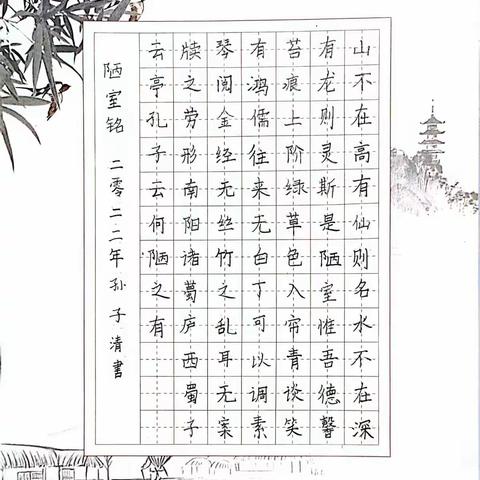 山不在高有仙则名水不在深
有龙则灵斯是陋室惟吾德馨
苔痕上阶绿草色入帘青谈笑
有鸿儒往来无白丁可以调素
琴阅金经无丝竹之乱耳无案
牍之劳形南阳诸葛庐西蜀子
云亭孔子云何陋之有
陋室铭 二零二二年孙子清書